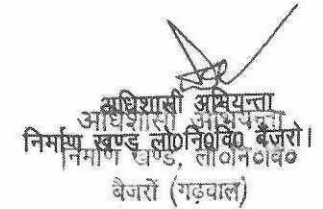 अधिशासी अभियन्ता
अधिशासी अभियन्ता
निर्माण खण्ड लो0नि0वि0 बैजरो।
निर्माण खण्ड, लो०नि०वि०
बैजरों (गढ़वाल)